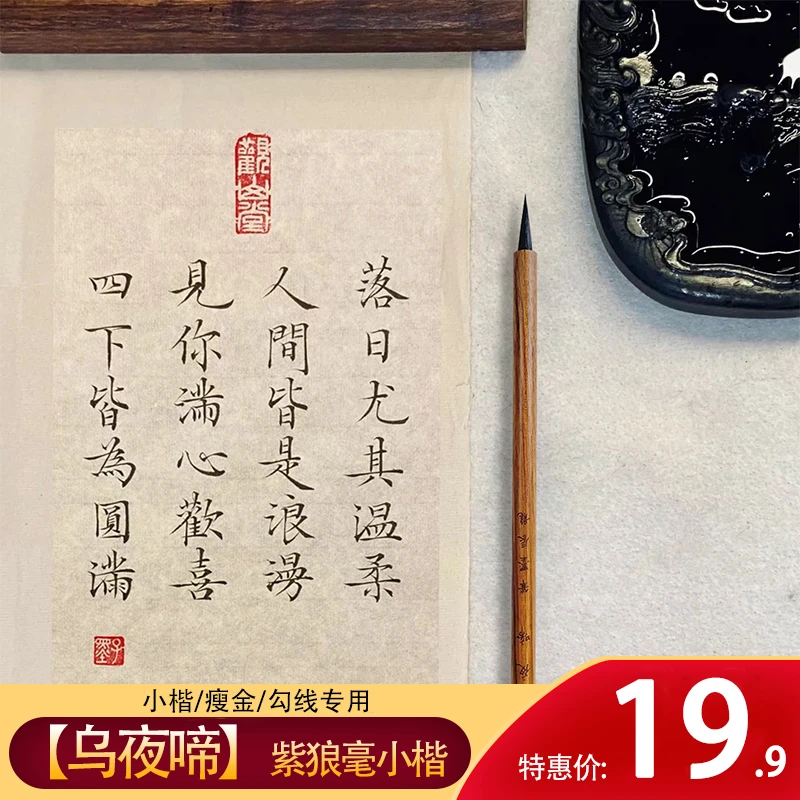 觀山堂
落日尤其温柔
人間皆是浪漫
見你滿心歡喜
四下皆為圓滿
子墨
小楷/瘦金/勾线专用
【乌夜啼】紫狼毫小楷
特惠价:19.9